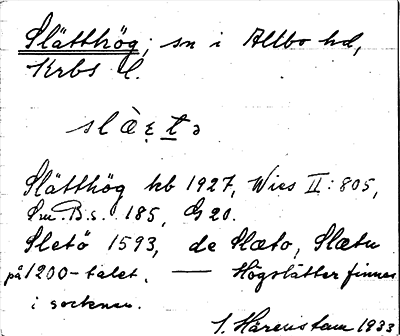 Slätthög; sn i Allbo hd,
Krbs l.
slὰꞓtə
Slätthög kb 1927, Wies II:805,
Sm.B.s. 185, G20.
Sletö 1593, de Slæto, Slætu
på 1200-talet. — Högslätter finnes
i socknen.
1933